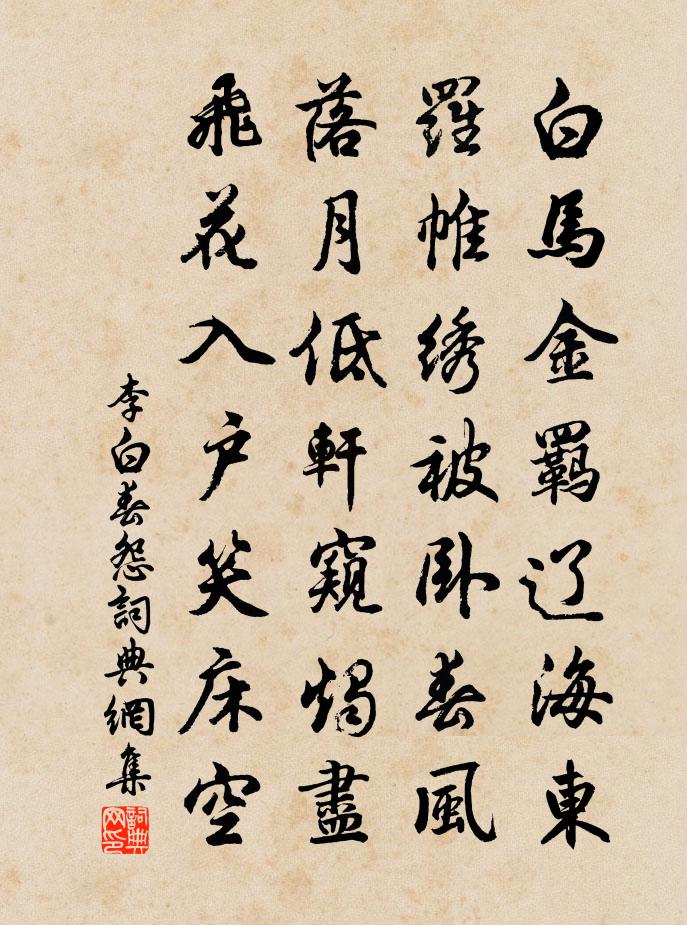 白馬金羁辽海東
羅帷绣被卧春風
落月低軒窺燭盡
飛花入户笑床空
李白春怨詞典網集
詞典网印